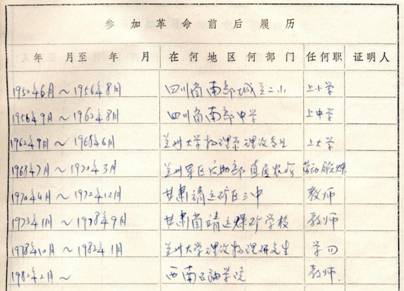 参加革命前后履历
年 月至 年 月 在何地区何部门 任何职 证明人
1950年6月～1956年8月 四川省南部城立二小 上小学
1956年9月～1962年8月 四川省南部中学 上中学
1962年9月～1968年6月 兰州大学物理系 上大学
1968年7月～1970年3月 兰州军区后勤部 农场 劳动锻炼
1970年4月～1972年12月 甘肃靖远矿区三中 教师
1973年1月～1978年9月 甘肃省靖远煤矿学校 教师
1978年10月～1982年1月 兰州大学 物理研究生 学习
1982年2月～ 西南石油学院 教师